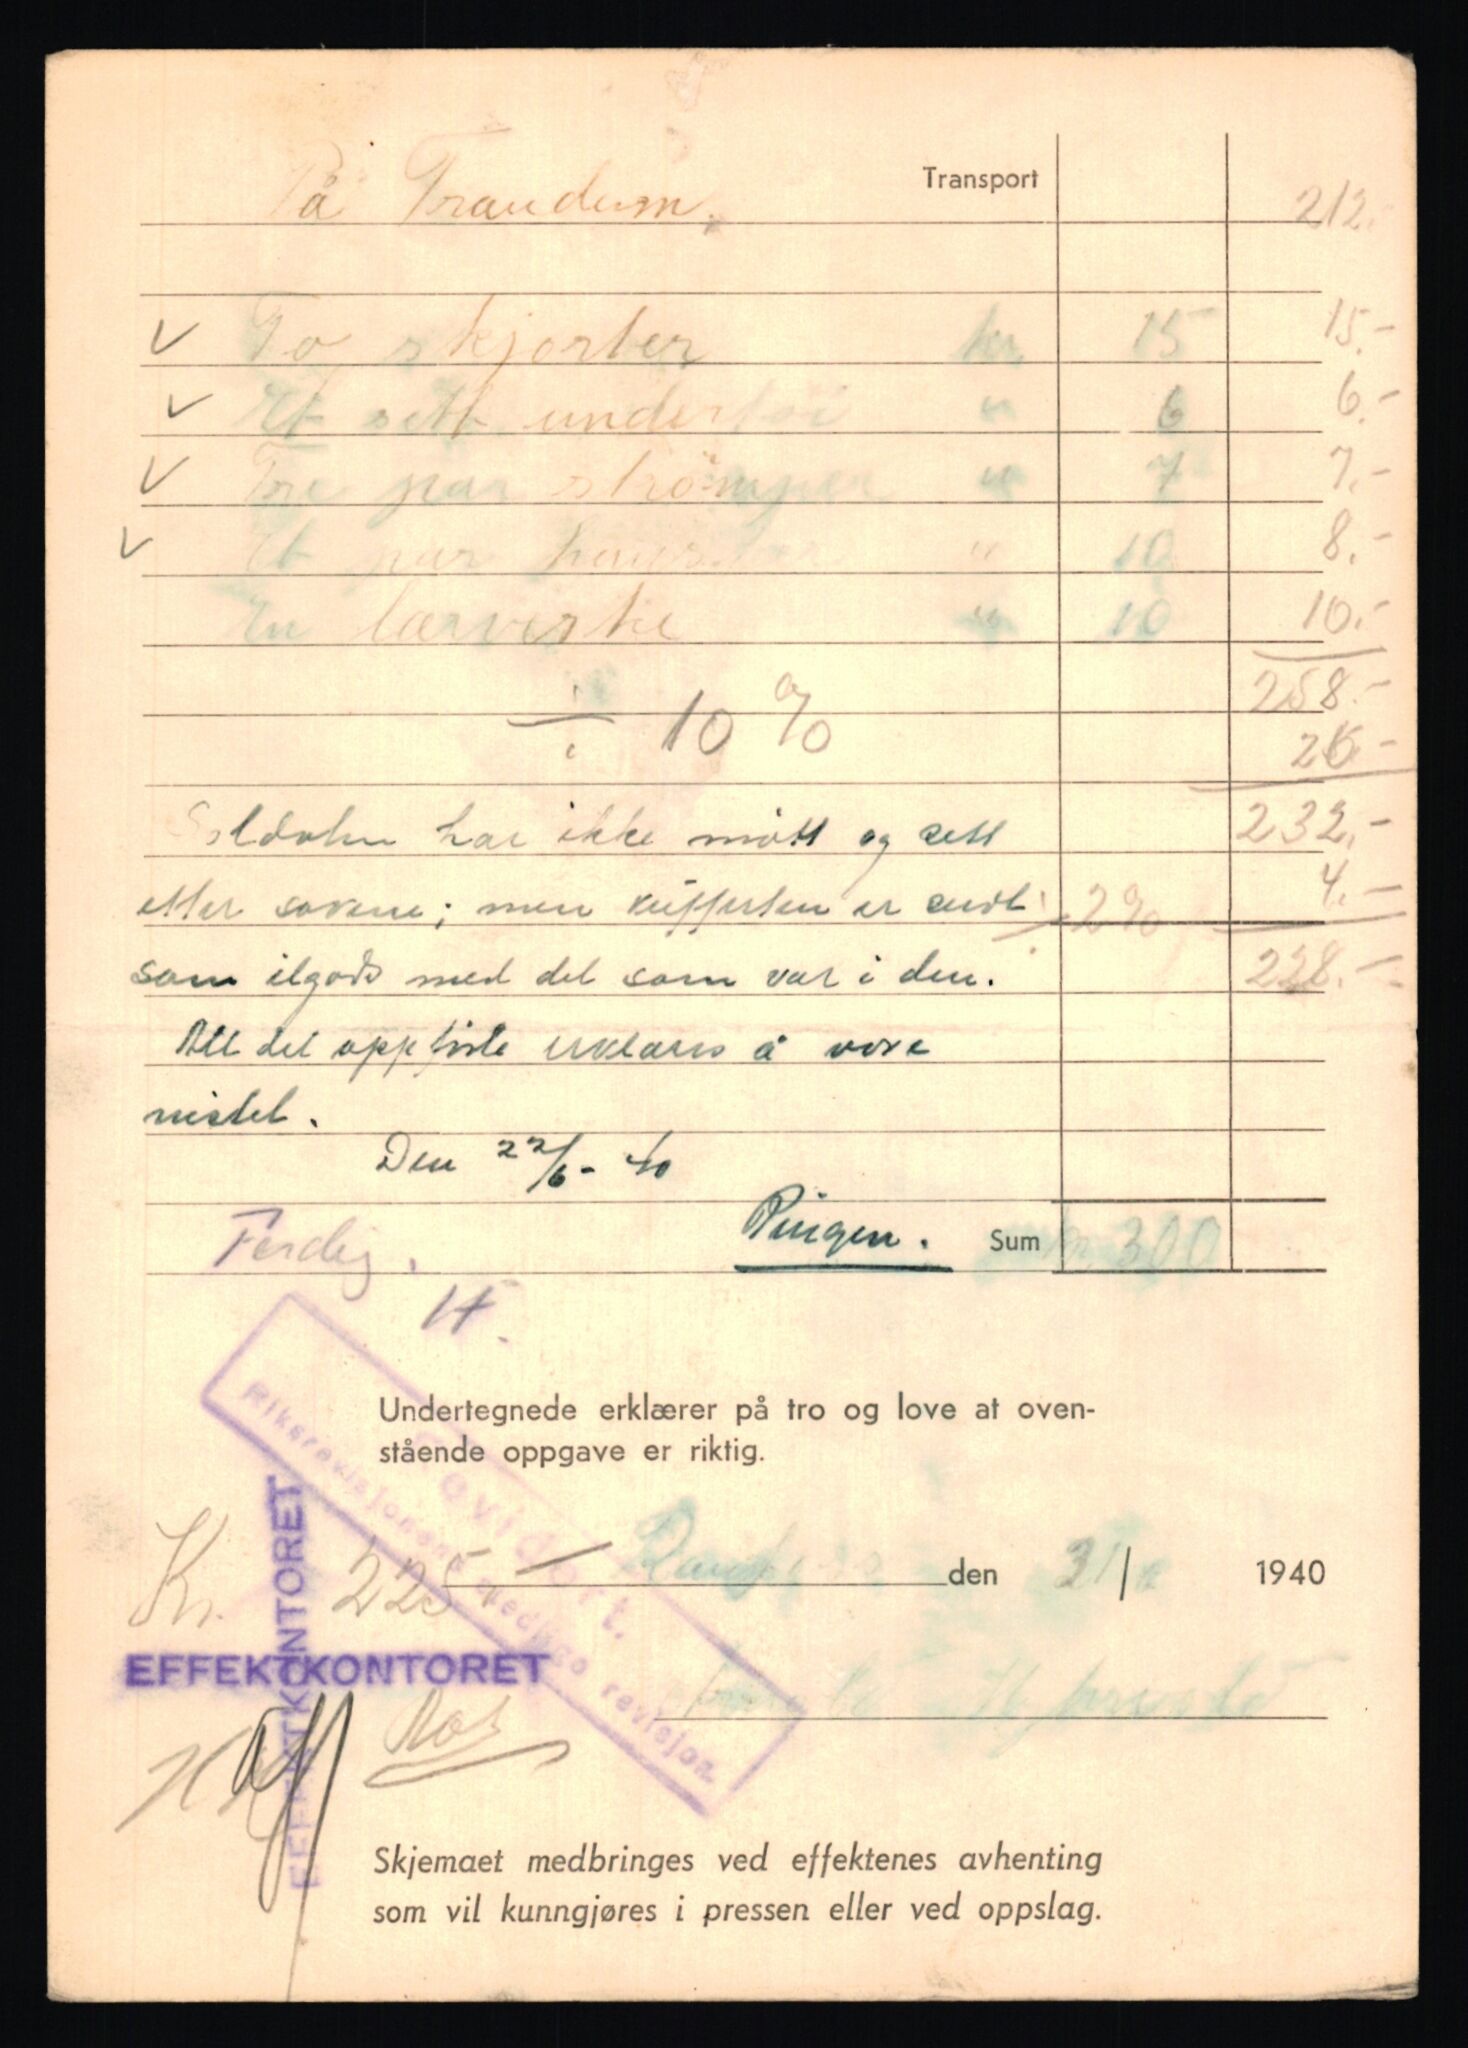 På Trandum. Transport 212.-
To skjorter kr 15 15.-
Et sett undertøi " 6 6.-
Tre par strømper " 7 7.-
Et par hansker " 10 8.-
En lærveske " 10 10.-
258.-
÷ 10 % 26.-
Soldaten har ikke møtt og sett 232.-
etter sakene; men kufferten er sendt ÷ 2% 4.-
som ilgods med det som var i den. 228.-
Alt det oppførte erklæres å være
mistet.
Den 22/6-40
Ferdig. Pringen. Sum kr. 300
H.
Undertegnede erklærer på tro og love at oven-
stående oppgave er riktig.
Revidert.
Riksrevisjonen medgå revisjon
Kr. 225 — den 31/ 1940
EFFEKTKONTORET
EFFEKTKONTORET
Skjemaet medbringes ved effektenes avhenting
som vil kunngjøres i pressen eller ved oppslag.